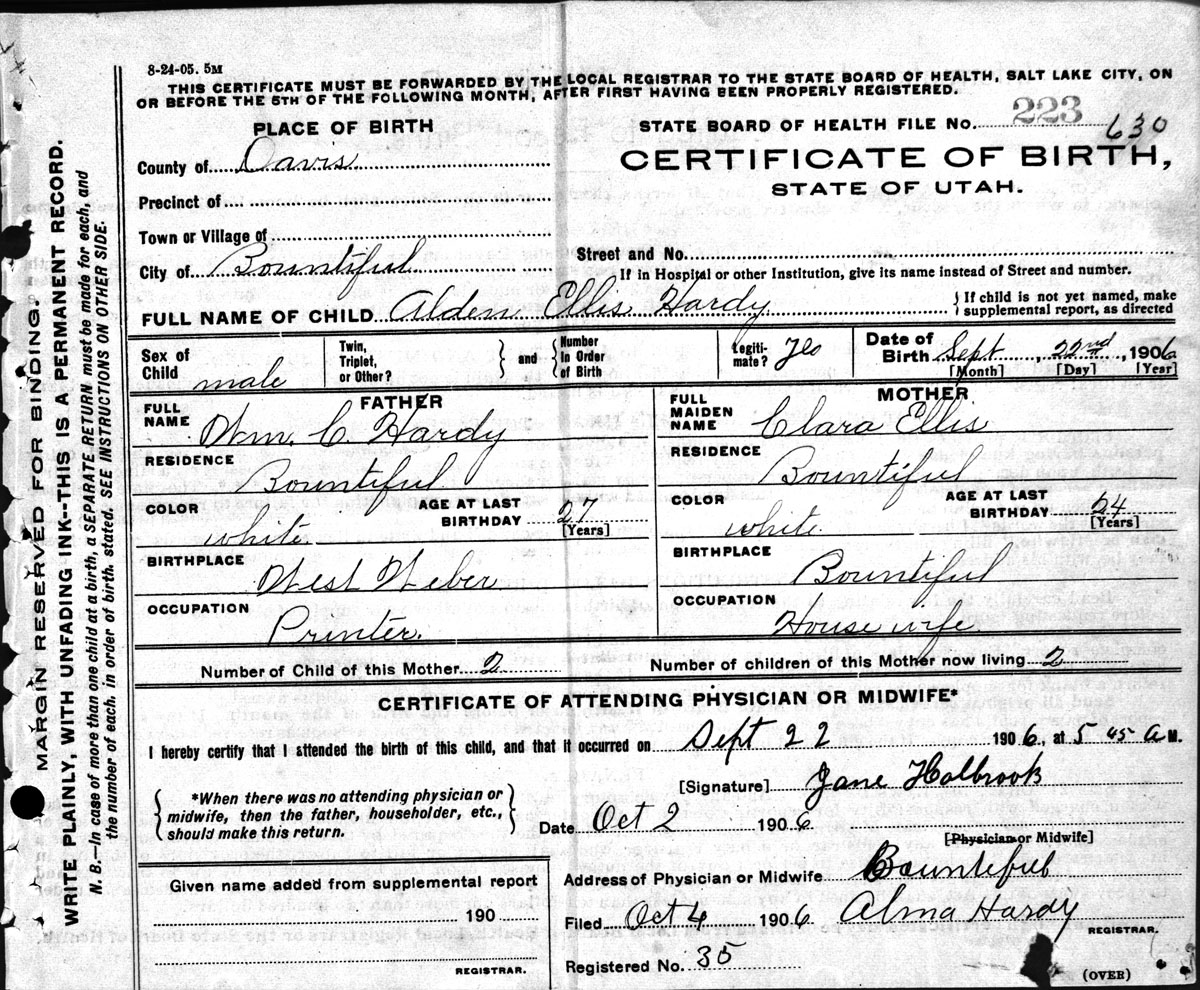 8-24-05. 5M
THIS CERTIFICATE MUST BE FORWARDED BY THE LOCAL REGISTRAR TO THE STATE BOARD OF HEALTH, SALT LAKE CITY, ON
OR BEFORE THE 5TH OF THE FOLLOWING MONTH, AFTER FIRST HAVING BEEN PROPERLY REGISTERED.
MARGIN RESERVED FOR BINDING.
WRITE PLAINLY, WITH UNFADING INK--THIS IS A PERMANENT RECORD.
N. B.—In case of more than one child at a birth, a SEPARATE RETURN must be made for each, and
the number of each, in order of birth, stated. SEE INSTRUCTIONS ON OTHER SIDE.
PLACE OF BIRTH
County of Davis
Precinct of
Town or Village of
City of Bountiful
STATE BOARD OF HEALTH FILE No. 223 630
CERTIFICATE OF BIRTH,
STATE OF UTAH.
Street and No.
If in Hospital or other Institution, give its name instead of Street and number.
FULL NAME OF CHILD Alden Ellis Hardy
} If child is not yet named, make
supplemental report, as directed
Sex of Child male
Twin, Triplet, or Other? } and { Number In Order of Birth
Legiti- mate? Yes
Date of Birth Sept 22nd, 1906
[Month] [Day] [Year]
FATHER
FULL NAME Wm. C. Hardy
RESIDENCE Bountiful
COLOR white AGE AT LAST BIRTHDAY 27 [Years]
BIRTHPLACE West Weber
OCCUPATION Printer.
MOTHER
FULL MAIDEN NAME Clara Ellis
RESIDENCE Bountiful
COLOR white AGE AT LAST BIRTHDAY 24 [Years]
BIRTHPLACE Bountiful
OCCUPATION House wife
Number of Child of this Mother 2 Number of children of this Mother now living 2
CERTIFICATE OF ATTENDING PHYSICIAN OR MIDWIFE*
I hereby certify that I attended the birth of this child, and that it occurred on Sept 22 1906, at 5 45 a M.
{ *When there was no attending physician or
midwife, then the father, householder, etc.,
should make this return. }
[Signature] Jane Holbrook
Date Oct 2 1906
[Physician or Midwife]
Given name added from supplemental report
190
REGISTRAR.
Address of Physician or Midwife Bountiful
Filed Oct 4 1906 Alma Hardy
REGISTRAR.
Registered No. 35
(OVER)